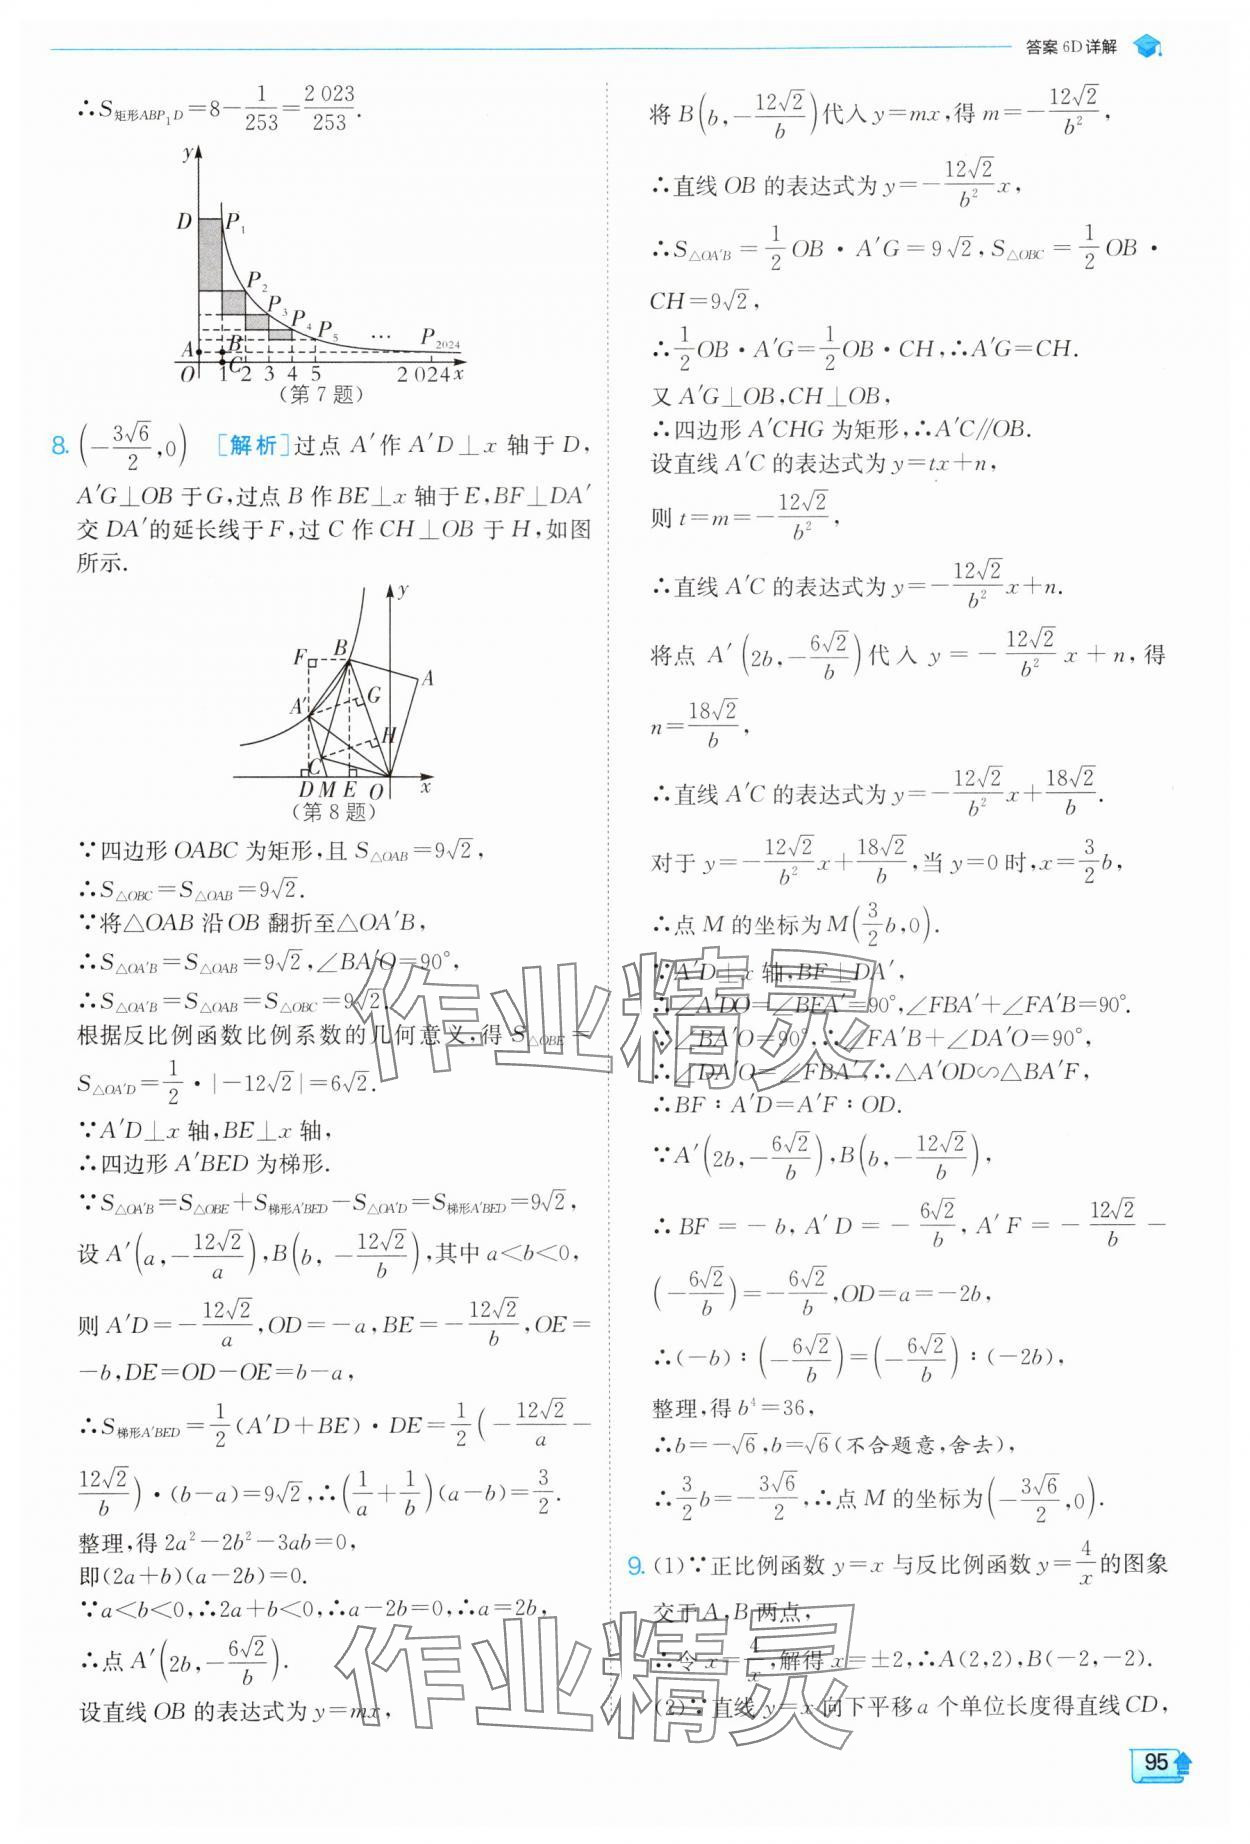 答案 6D详解
∴S矩形ABP₁D=8-1/253=2 023/253.
y
D
P₁
P₂
P₃
P₄
P₅
…
P₂₀₂₄
A
B
C
O 1 2 3 4 5 2 024 x
(第7题)
8. (-3√6/2,0) [解析]过点 A′作 A′D⊥x 轴于 D,
A′G⊥OB 于G,过点 B 作 BE⊥x 轴于E,BF⊥DA′
交 DA′的延长线于 F,过 C 作 CH⊥OB 于 H,如图
所示.
y
F B
A
A′ G
H
C
D M E O x
(第8题)
∵四边形 OABC 为矩形,且 S△OAB=9√2,
∴S△OBC=S△OAB=9√2.
∵将△OAB 沿 OB 翻折至△OA′B,
∴S△OA′B=S△OAB=9√2,∠BA′O=90°,
∴S△OA′B=S△OAB=S△OBC=9√2.
根据反比例函数比例系数的几何意义,得 S△OBE=
S△OA′D=1/2·|-12√2|=6√2.
∵A′D⊥x 轴,BE⊥x 轴,
∴四边形 A′BED 为梯形.
∵S△OA′B=S△OBE+S梯形A′BED-S△OA′D=S梯形A′BED=9√2,
设 A′(a,-12√2/a),B(b,-12√2/b),其中 a<b<0,
则 A′D=-12√2/a,OD=-a,BE=-12√2/b,OE=
-b,DE=OD-OE=b-a,
∴S梯形A′BED=1/2(A′D+BE)·DE=1/2(-12√2/a-
12√2/b)·(b-a)=9√2,∴(1/a+1/b)(a-b)=3/2.
整理,得 2a²-2b²-3ab=0,
即(2a+b)(a-2b)=0.
∵a<b<0,∴2a+b<0,∴a-2b=0,∴a=2b,
∴点 A′(2b,-6√2/b).
设直线 OB 的表达式为 y=mx,
将 B(b,-12√2/b)代入 y=mx,得 m=-12√2/b²,
∴直线 OB 的表达式为 y=-12√2/b² x,
∴S△OA′B=1/2 OB·A′G=9√2,S△OBC=1/2 OB·
CH=9√2,
∴1/2 OB·A′G=1/2 OB·CH,∴A′G=CH.
又 A′G⊥OB,CH⊥OB,
∴四边形 A′CHG 为矩形,∴A′C∥OB.
设直线 A′C 的表达式为 y=tx+n,
则 t=m=-12√2/b²,
∴直线 A′C 的表达式为 y=-12√2/b² x+n.
将点 A′(2b,-6√2/b)代入 y=-12√2/b² x+n,得
n=18√2/b,
∴直线 A′C 的表达式为 y=-12√2/b² x+18√2/b.
对于 y=-12√2/b² x+18√2/b,当 y=0 时,x=3/2 b,
∴点 M 的坐标为 M(3/2 b,0).
∵A′D⊥x 轴,BF⊥DA′,
∴∠A′DO=∠BEA′=90°,∠FBA′+∠FA′B=90°.
∵∠BA′O=90°,∴∠FA′B+∠DA′O=90°,
∴∠DA′O=∠FBA′,∴△A′OD∽△BA′F,
∴BF∶A′D=A′F∶OD.
∵A′(2b,-6√2/b),B(b,-12√2/b),
∴BF=-b,A′D=-6√2/b,A′F=-12√2/b-
(-6√2/b)=-6√2/b,OD=a=-2b,
∴(-b)∶(-6√2/b)=(-6√2/b)∶(-2b),
整理,得 b⁴=36,
∴b=-√6,b=√6(不合题意,舍去),
∴3/2 b=-3√6/2,∴点 M 的坐标为(-3√6/2,0).
9. (1)∵正比例函数 y=x 与反比例函数 y=4/x 的图象
交于 A,B 两点,
∴令 x=4/x,解得 x=±2,∴A(2,2),B(-2,-2).
(2)∵直线 y=x 向下平移 a 个单位长度得直线 CD,
95
作业精灵
作业精灵